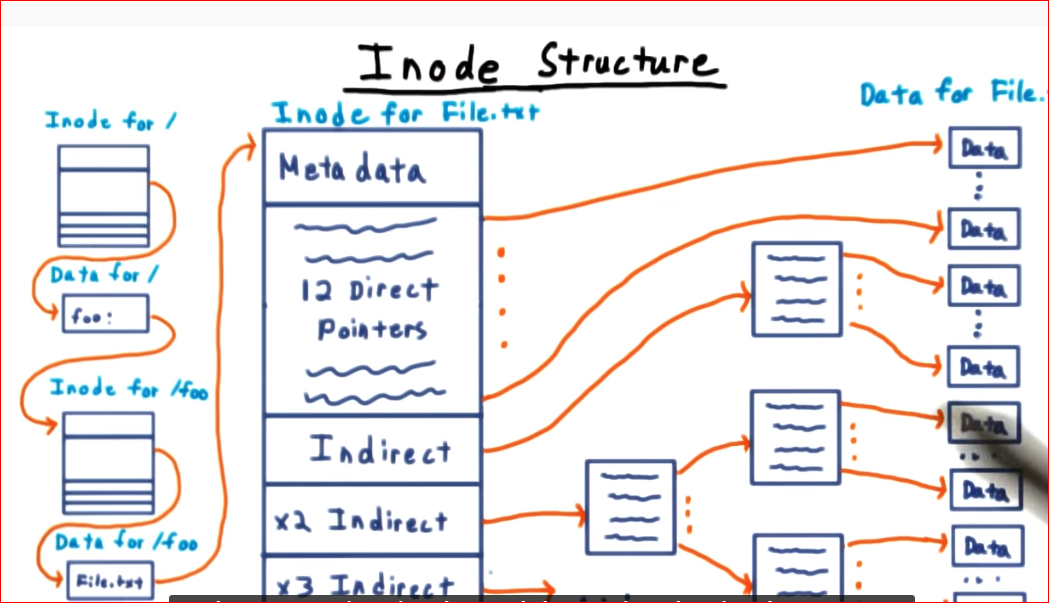 Inode Structure
Inode for /
Data for /
foo:
Inode for /foo
Data for /foo
File.txt
Inode for File.txt
Meta data
12 Direct
Pointers
Indirect
x2 Indirect
x3 Indirect
Data for File.
Data
Data
Data
Data
Data
Data
Data